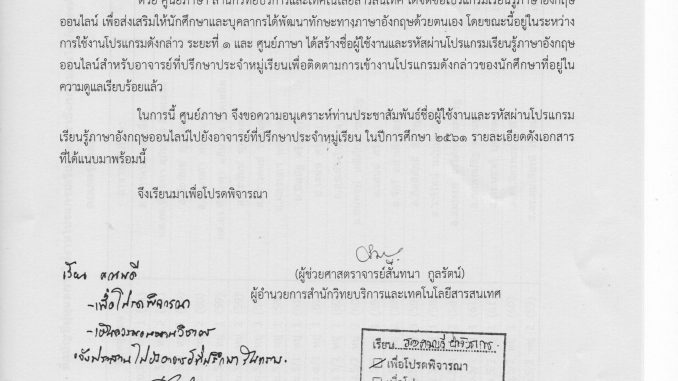 ด้วย ศูนย์ภาษา สำนักวิทยบริการและเทคโนโลยีสารสนเทศ ได้จัดซื้อโปรแกรมเรียนรู้ภาษาอังกฤษ
ออนไลน์ เพื่อส่งเสริมให้นักศึกษาและบุคลากรได้พัฒนาทักษะทางภาษาอังกฤษด้วยตนเอง โดยขณะนี้อยู่ในระหว่าง
การใช้งานโปรแกรมดังกล่าว ระยะที่ ๑ และ ศูนย์ภาษา ได้สร้างชื่อผู้ใช้งานและรหัสผ่านโปรแกรมเรียนรู้ภาษาอังกฤษ
ออนไลน์สำหรับอาจารย์ที่ปรึกษาประจำหมู่เรียนเพื่อติดตามการเข้างานโปรแกรมดังกล่าวของนักศึกษาที่อยู่ใน
ความดูแลเรียบร้อยแล้ว
ในการนี้ ศูนย์ภาษา จึงขอความอนุเคราะห์ท่านประชาสัมพันธ์ชื่อผู้ใช้งานและรหัสผ่านโปรแกรม
เรียนรู้ภาษาอังกฤษออนไลน์ไปยังอาจารย์ที่ปรึกษาประจำหมู่เรียน ในปีการศึกษา ๒๕๖๑ รายละเอียดดังเอกสาร
ที่ได้แนบมาพร้อมนี้
จึงเรียนมาเพื่อโปรดพิจารณา
(ผู้ช่วยศาสตราจารย์สันทนา กูลรัตน์)
ผู้อำนวยการสำนักวิทยบริการและเทคโนโลยีสารสนเทศ
เรียน คณบดี
-เพื่อโปรดพิจารณา
เรียน รองคณบดีฝ่ายวิชาการ
เพื่อโปรดพิจารณา